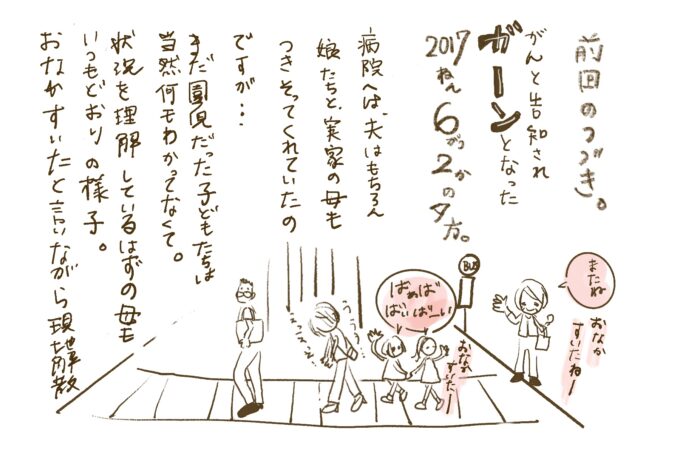 前回のつづき。
がんと告知され
ガーンとなった
2017ねん6がつ2かの夕方。
病院へは、夫はもちろん
娘たちと、実家の母も
つきそってくれていたの
ですが・・・
まだ園児だった子どもたちは
当然何もわかってなくて。
状況を理解しているはずの母も
いつもどおりの様子。
おなかすいたと言いながら現地解散
BUS
またね
おなか
すいたねー
ばぁば
ばいばーい
おなか
すいたー